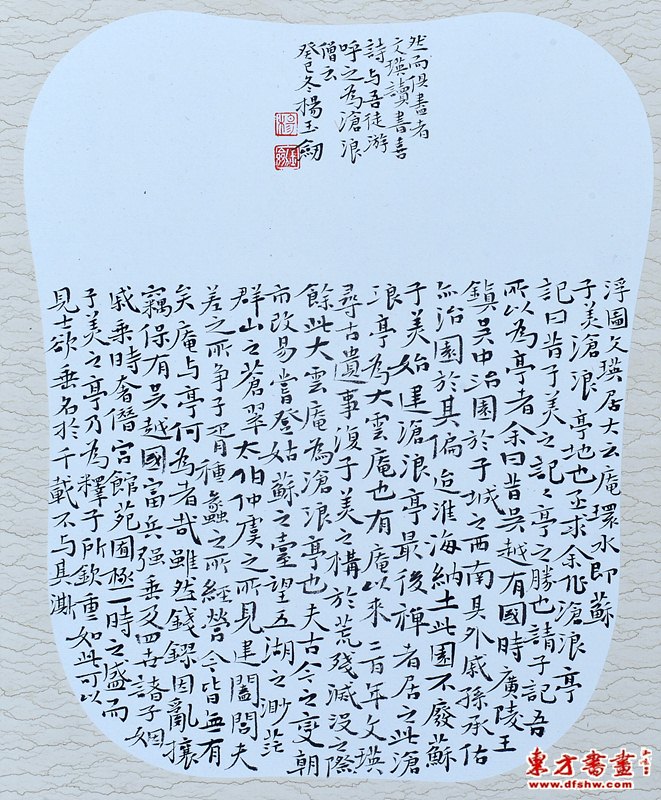 浮圖文瑛居大云庵環水即蘇
子美滄浪亭地也亟求余作滄浪亭
記曰昔子美之記々亭之勝也請子記吾
所以為亭者余曰昔吳越有國時廣陵王
鎮吳中治園於子城之西南其外戚孫承佑
亦治園於其偏迨淮海納土此園不廢蘇
子美始建滄浪亭最後禪者居之此滄
浪亭為大雲庵也有庵以來二百年文瑛
尋古遺事復子美之構於荒殘滅沒之際
餘此大雲庵為滄浪亭也夫古今之變朝
市改易嘗登姑蘇之臺望五湖之渺茫
群山之蒼翠太伯仲虞之所見建闔閭夫
差之所爭子胥種蠡之所經營今皆無有
矣庵与亭何為者哉雖然錢鏐因亂攘
竊保有吳越國富兵强垂及四世諸子姻
戚乘時奢僭宮館苑囿極一時之盛而
子美之亭乃為釋子所欽重如此可以
見士欲垂名於千載不与其澌
然而俱盡者
文瑛讀書喜
詩与吾徒游
呼之為滄浪
僧云
癸巳冬楊玉劒
楊
東方書畫
www.dfshw.com